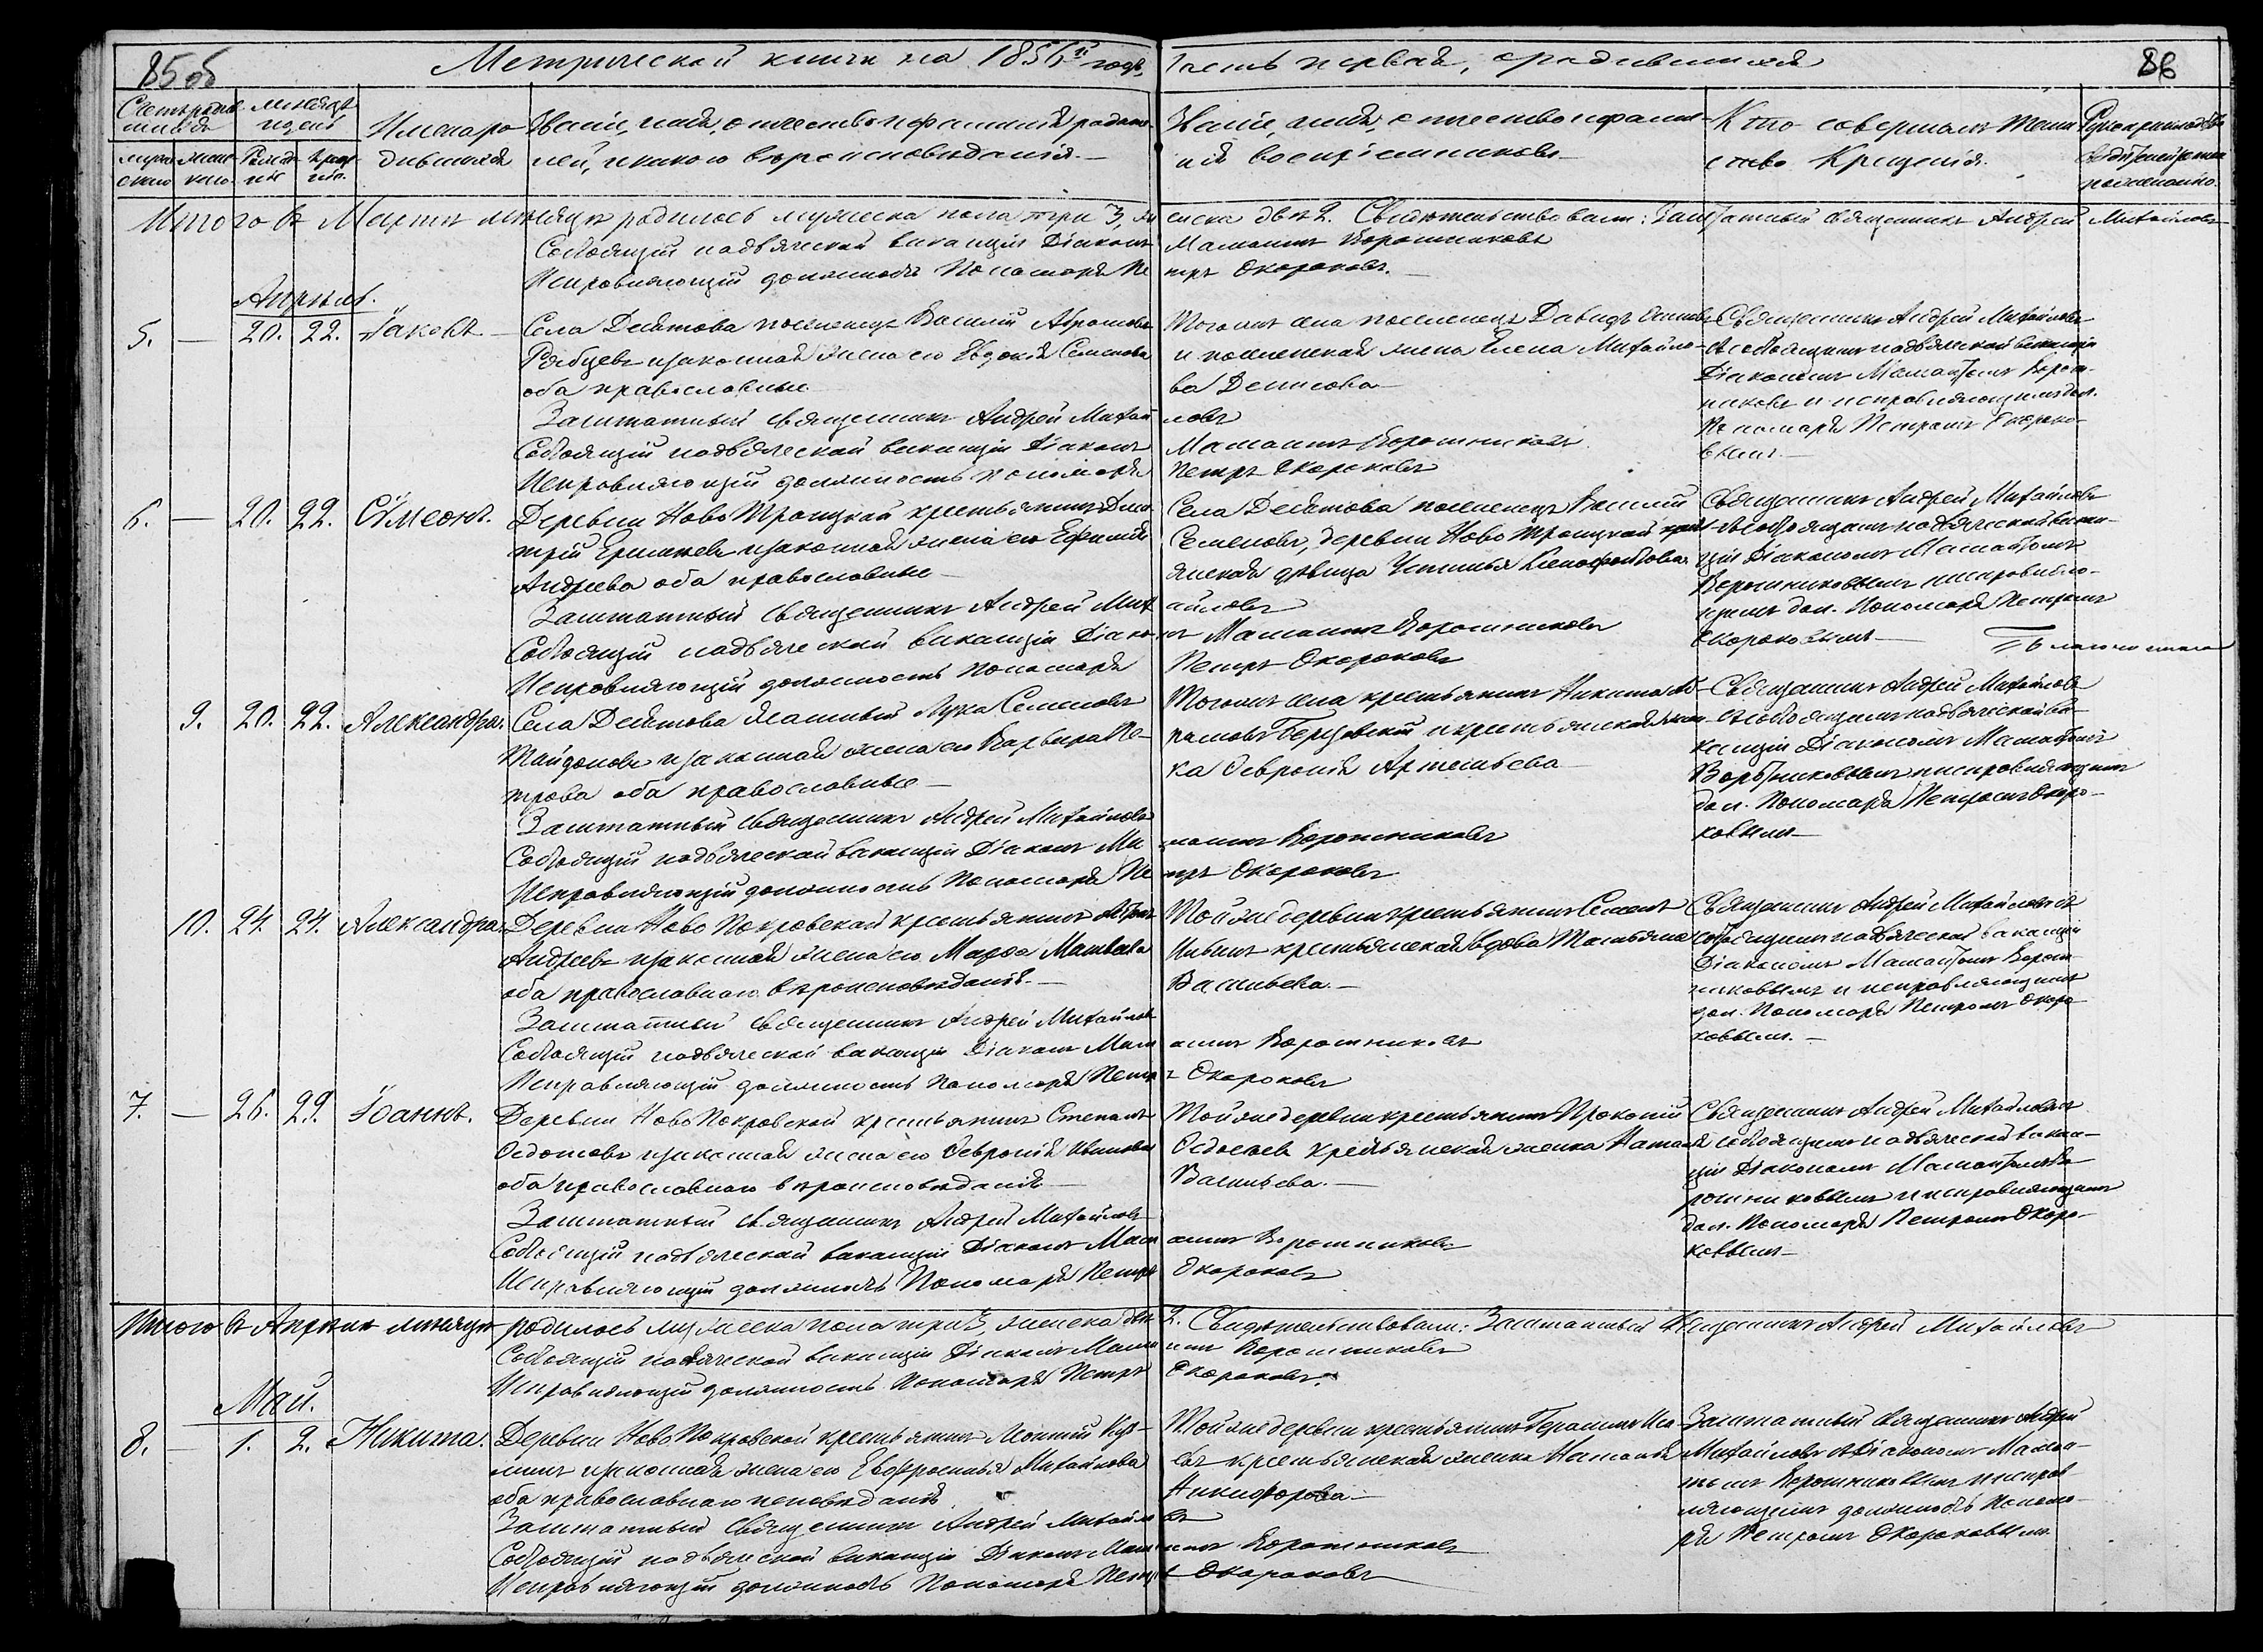 85об
Метрической книги на 1856й годъ, Часть первая, о родившихся
86
Счетъ родив-
шихся
Мѣсяцъ
и день
мужс-
каго
женс-
каго
Рожде-
нія
Крще-
нія
Имена ро-
дившихся
Званіе, имя, отчество и фамилія родите-
лей, и какого вѣроисповѣданія.
Званіе, имя, отчество и фами-
лія воспріемниковъ
Кто совершалъ таин-
ство Крещенія.
Итого въ Мартѣ мѣсяцѣ родилось мужеска пола три 3, женска двѣ 2. Свидѣтельствовали: Заштатный священникъ Андрей Михайловъ
Состоящій на дьяческой ваканціи Діаконъ Мамантъ Ворошниковъ
Исправляющій должность Пономаря Петръ Окороковъ.
Апрѣль.
5. — 20. 22. Іаковъ.
Села Десятова поселенецъ Василій Абрамовъ
Рябцевъ и законная жена его Евдокія Семенова
оба православные
Тогоже села поселенецъ Давидъ
и поселенская жена Елена Михайло-
ва Денисова
Священникъ Андрей Михайловъ
съ состоящимъ на дьяческой ваканціи
Діакономъ Мамантомъ Ворош-
никовъ и исправляющимъ дол.
Пономаря Петромъ Окороко-
вымъ.
Заштатный священникъ Андрей Михайловъ
Состоящій на дьяческой ваканціи Діаконъ Мамантъ Ворошниковъ
Исправляющій должность Пономаря Петръ Окороковъ
6. — 20. 22. Сѵмеонъ.
Деревни Ново Троицкой крестьянинъ Дми-
трій и законная жена его Ефимія
Андреева оба православные
Села Десятова поселенецъ Василій
Семеновъ, деревни Ново Троицкой крест-
янская дѣвица Устинья Ксенофонтова
Священникъ Андрей Михайловъ
съ состоящимъ на дьяческой вакан-
ціи Діакономъ Мамантомъ
Ворошниковымъ и исправляю-
щимъ дол. Пономаря Петромъ
Окороковымъ
Заштатный священникъ Андрей Михайловъ
Состоящій на дьяческой ваканціи Діаконъ Мамантъ Ворошниковъ
Исправляющій должность Пономаря Петръ Окороковъ
9. 20. 22. Александра.
Села Десятова ясашный Лука Семеновъ
Тайдоновъ и законная жена его Варвара Пе-
трова оба православные
Тогоже села крестьянинъ Никита Аб-
рамовъ и крестьянская жен-
ка Февронія Артемьева
Священникъ Андрей Михайловъ
съ состоящимъ на дьяческой ва-
канціи Діакономъ Мамантомъ
Ворошниковымъ и исправляющимъ
дол. Пономаря Петромъ Окоро-
ковымъ
Заштатный священникъ Андрей Михайловъ
Состоящій на дьяческой ваканціи Діаконъ Мамантъ Ворошниковъ
Исправляющій должность Пономаря Петръ Окороковъ
10. 24. 24. Александра.
Деревни Ново Покровской крестьянинъ
Андреевъ и законная жена его Марѳа Матвѣева
оба православнаго вѣроисповѣданія.
Тойже деревни крестьянинъ Семенъ
Ивинъ крестьянская вдова Татьяна
Васильева.
Священникъ Андрей Михайловъ съ
состоящимъ на дьяческой ваканціи
Діакономъ Мамантомъ Ворош-
никовымъ и исправляющимъ
дол. Пономаря Петромъ Окоро-
ковымъ.
Заштатный священникъ Андрей Михайловъ
Состоящій на дьяческой ваканціи Діаконъ Мамантъ Ворошниковъ
Исправляющій должность Пономаря Петръ Окороковъ
7. — 26. 29. Іоаннъ.
Деревни Ново Покровской крестьянинъ Степанъ
Ѳедотовъ и законная жена его Февронія Иванова
оба православнаго вѣроисповѣданія
Тойже деревни крестьянинъ Прокопій
Ѳедосеевъ крестьянская женка Наталья
Васильева.
Священникъ Андрей Михайловъ съ
состоящимъ на дьяческой вакан-
ціи Діакономъ Мамантомъ Во-
рошниковымъ и исправляющимъ
дол. Пономаря Петромъ Окоро-
ковымъ
Заштатный священникъ Андрей Михайловъ
Состоящій на дьяческой ваканціи Діаконъ Мамантъ Ворошниковъ
Исправляющій должность Пономаря Петръ Окороковъ
Итого въ Апрѣлѣ мѣсяцѣ родилось мужеска пола три 3, женска двѣ 2. Свидѣтельствовали: Заштатный Священникъ Андрей Михайловъ
Состоящій на дьяческой ваканціи Діаконъ Мамантъ Ворошниковъ
Исправляющій должность Пономаря Петръ Окороковъ.
Май.
8. — 1. 2. Никита.
Деревни Ново Покровской крестьянинъ Леонтій Куз-
минъ и законная жена его Евфросинья Михайлова
оба православнаго исповѣданія
Тойже деревни крестьянинъ Герасимъ Иса-
евъ крестьянская женка Наталья
Никифорова
Заштатный священникъ Андрей
Михайловъ съ Діакономъ Маман-
томъ Ворошниковымъ и исправ-
ляющимъ должность Понома-
ря Петромъ Окороковымъ
Заштатный Священникъ Андрей Михайловъ
Состоящій на дьяческой ваканціи Діаконъ Мамантъ Ворошниковъ
Исправляющій должность Пономаря Петръ Окороковъ